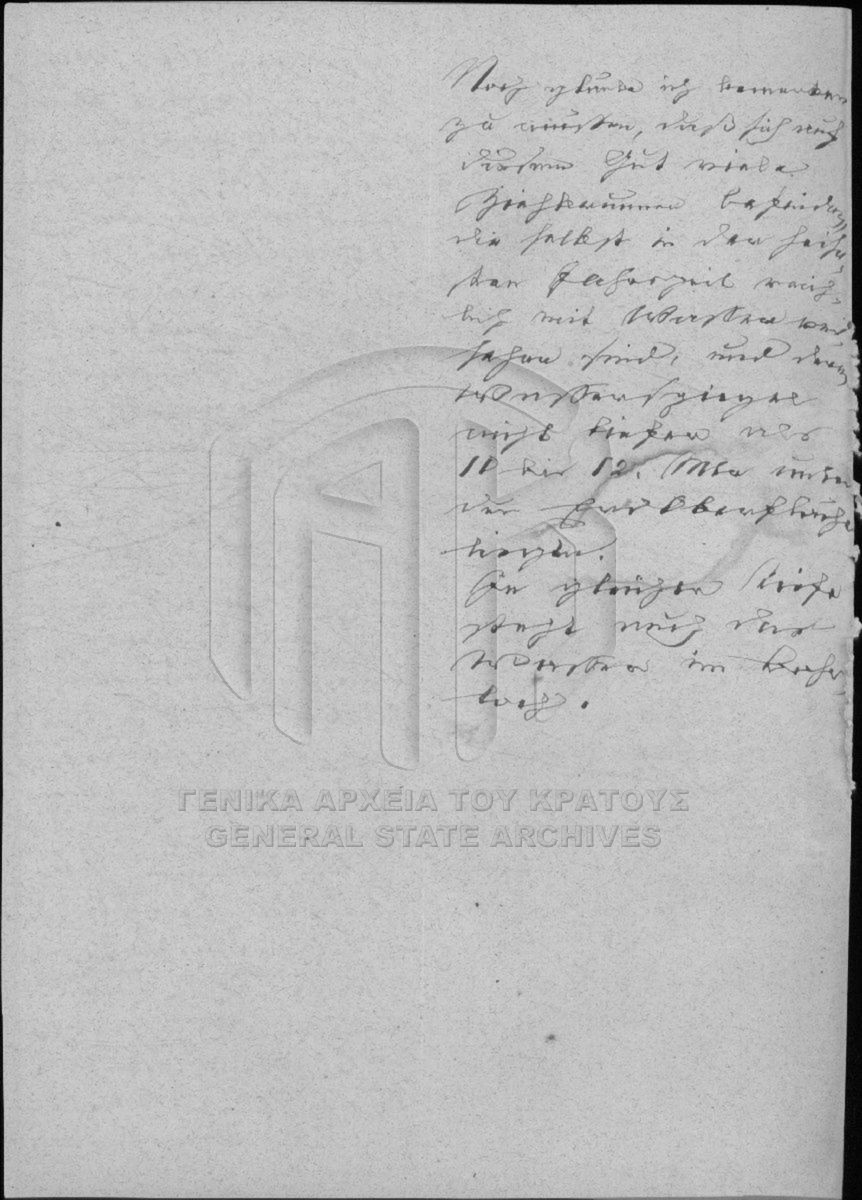 Noch glaube ich bemerken
zu müssen, daß sich auf
diesem Gut viele
Ziehbrunnen befinden,
die selbst in der heiße-
sten Jahreszeit reich-
lich mit Wasser ver-
sehen sind, und deren
Wasserspiegel
nicht tiefer als
10 bis 12. Mtr unter
der Erdoberfläche
liegen.
In gleicher Tiefe
steht auch das
Wasser im Bohr-
loch.
ΓΕΝΙΚΑ ΑΡΧΕΙΑ ΤΟΥ ΚΡΑΤΟΥΣ
GENERAL STATE ARCHIVES